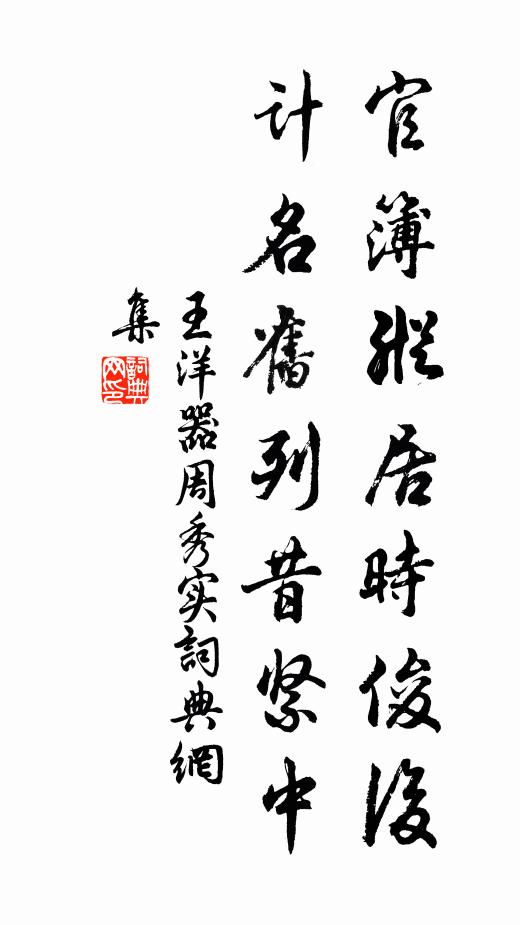 官簿縱居時俊後
计名舊列昔紧中
王洋器周秀实詞典網
集
詞典網印